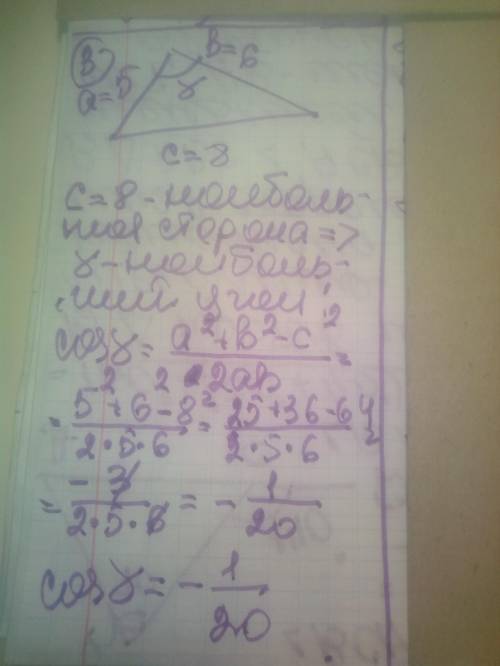 в) a=5 b=6
γ
c=8
c=8 - наиболь-
шая сторона =>
γ - наиболь-
ший угол!
cosγ = (a²+b²-c²)/(2ab) =
= (5²+6²-8²)/(2·5·6) = (25+36-64)/(2·5·6) =
= -3/(2·5·6) = -1/20
cosγ = -1/20